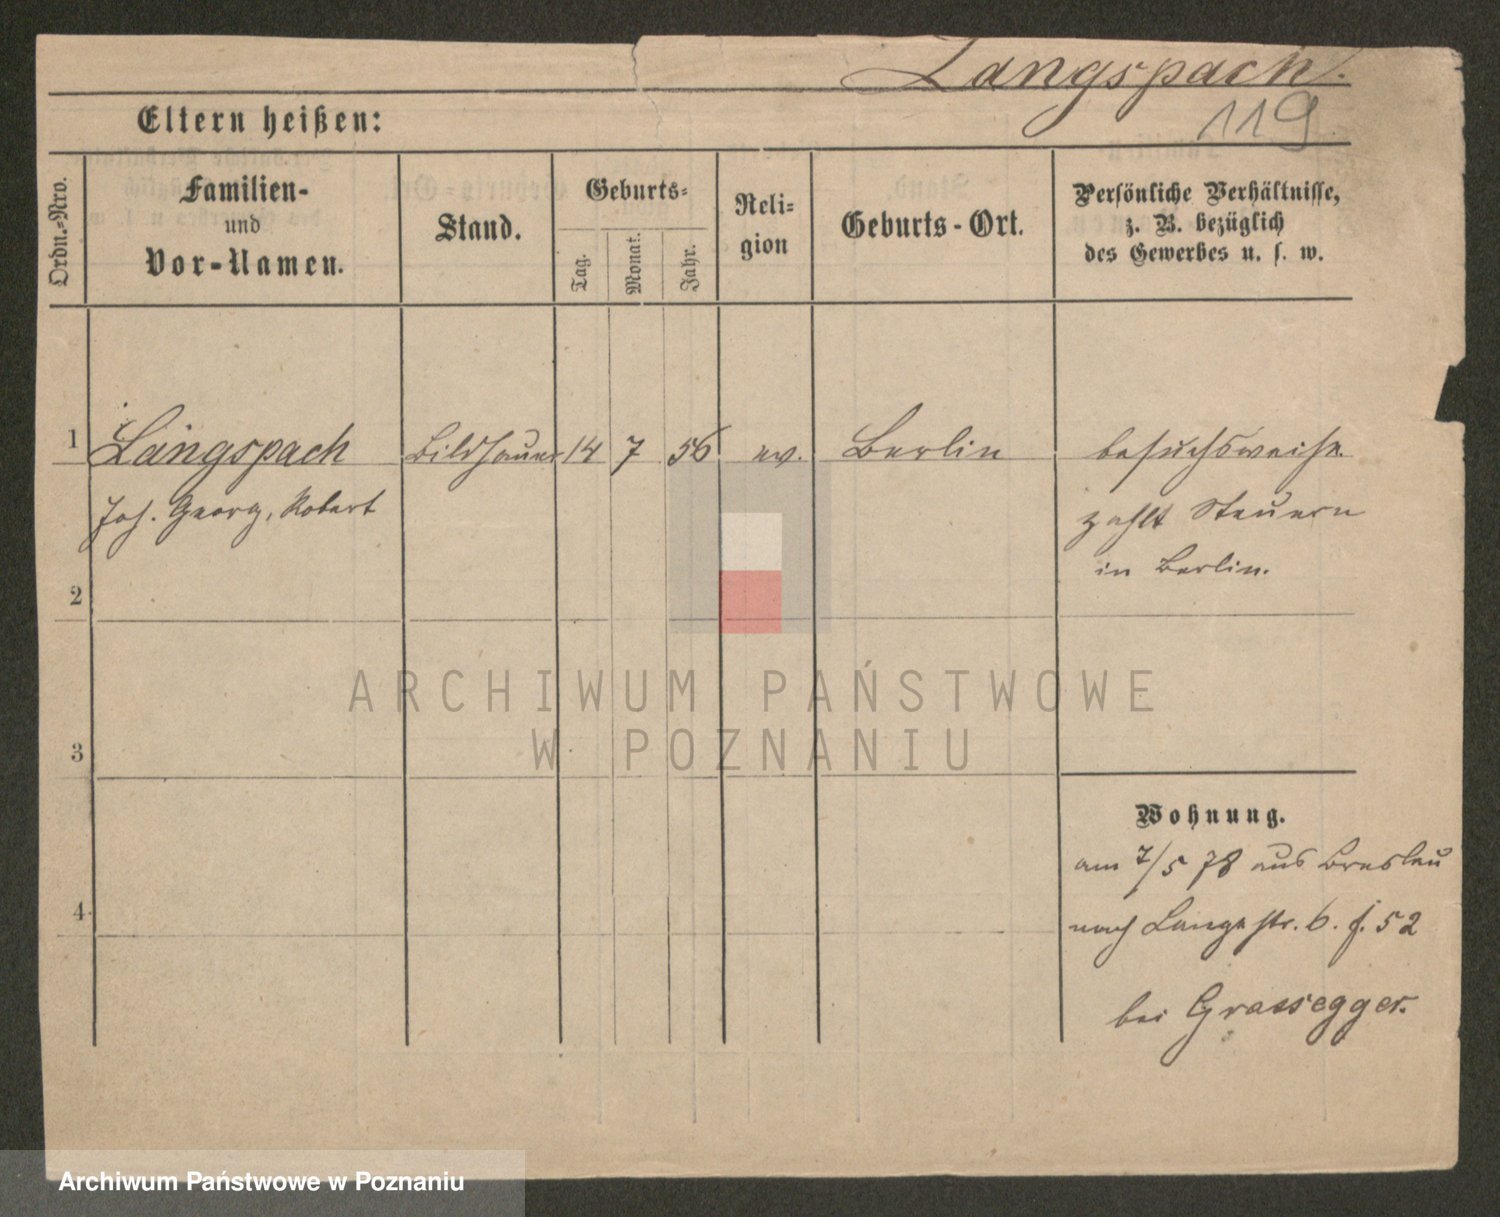 Langspach.
119
Eltern heißen:
Ordn.-Nro.
Familien-
und
Vor-Namen.
Stand.
Geburts-
Tag.
Monat.
Jahr.
Reli-
gion
Geburts-Ort.
Persönliche Verhältnisse,
z. B. bezüglich
des Gewerbes u. s. w.
1 Langspach Bildhauer 14 7 56 ev. Berlin besuchsweise.
Joh. Georg, Robert
zahlt Steuern
in Berlin.
2
3
4
Wohnung.
am 7/5 78 aus Breslau
nach Langestr. 6. f. 52
bei Grassegger.
ARCHIWUM PAŃSTWOWE
W POZNANIU
Archiwum Państwowe w Poznaniu